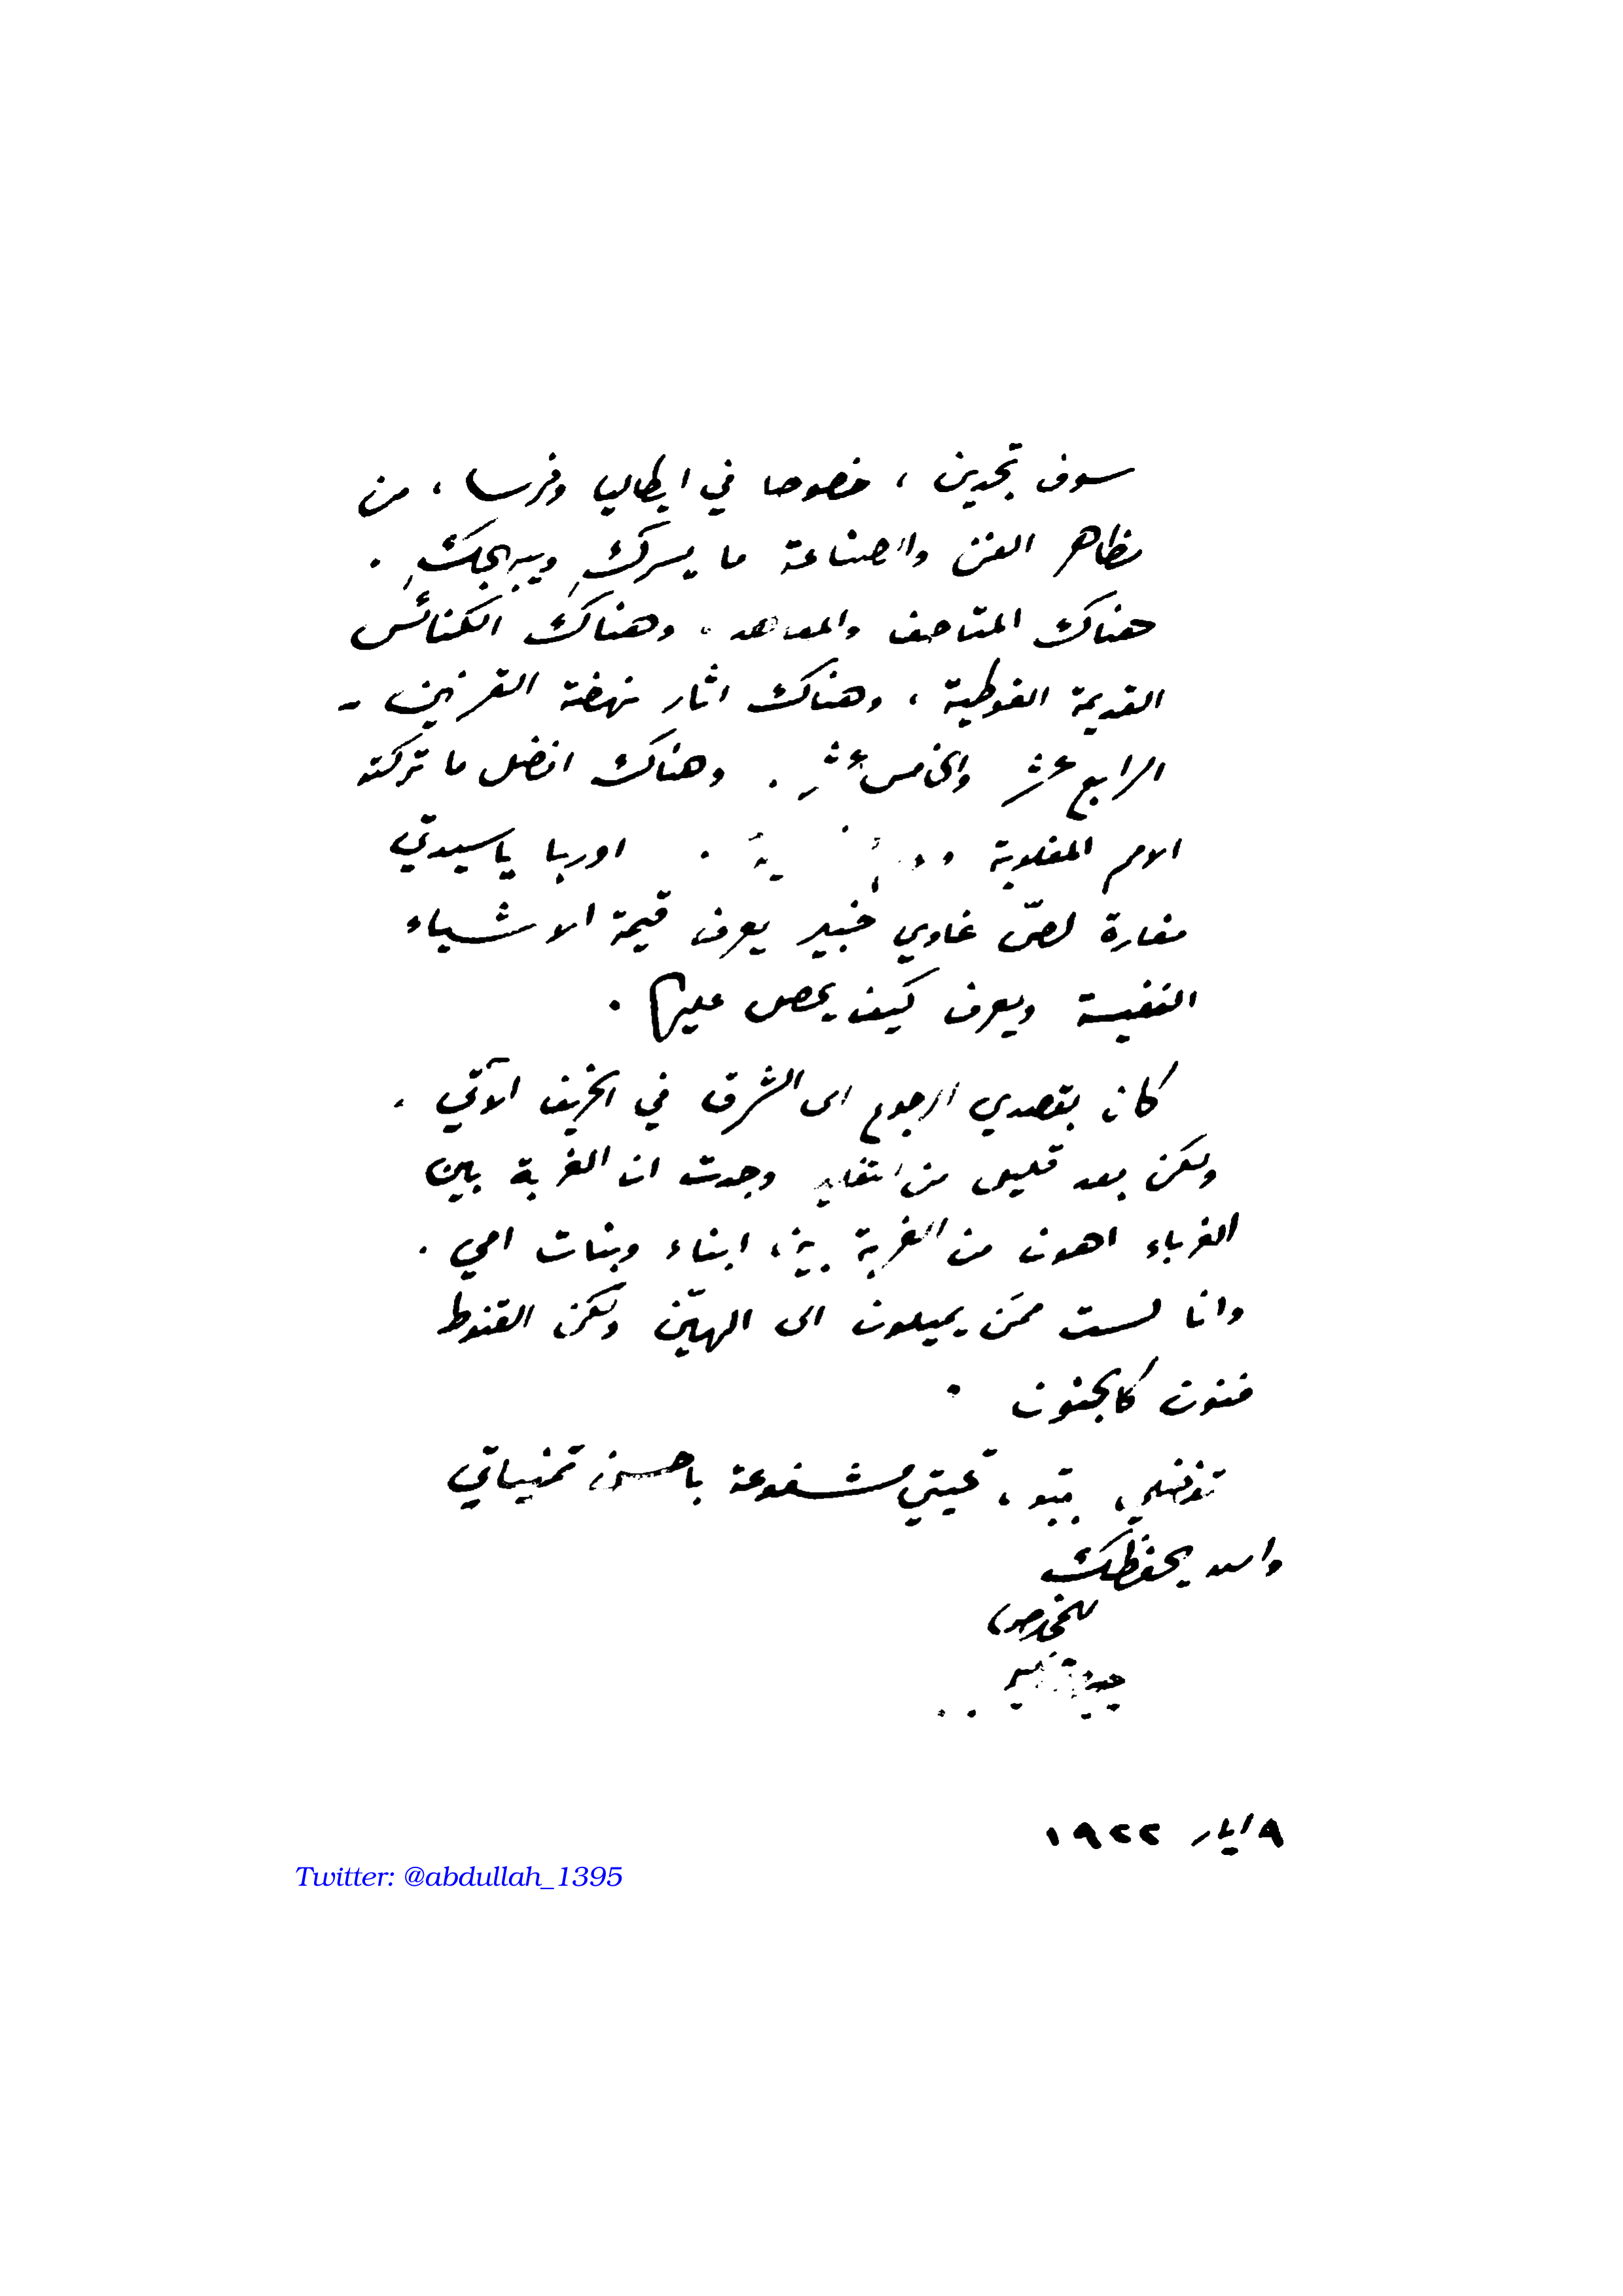 سوف تجدين ، خصوصا في ايطاليا وفرنسا ، من
مظاهر الفن والصناعة ما يسركِ ويبهجكِ .
هناك المتاحف والمعاهد ، وهناك الكنائس
القديمة الغوطية ، وهناك اثار نهضة القرنين -
الرابع عشر والخامس عشر . وهناك افضل ما تركته
الامم المغلوبة . اوربا يا سيدتي
مغارة لصّ غاوي خبير يعرف قيمة الاشياء
النفيسة ويعرف كيف يحصل عليها .
كان بقصدي الرجوع الى الشرق في الخريف الآتي ،
ولكن بعد قليل من التفكير وجدت ان الغربة بين
الغرباء اهون من الغربة بين ابناء وبنات امي .
وانا لست ممَن يميلون الى الهيّن ولكن القنوط
فنون كالجنون .
تفضلي بقبول تحيتي مشفوعة باحسن تمنياتي
والله يحفظك
المخلص
جبران
٩ ايار ١٩٢٢
Twitter: @abdullah_1395